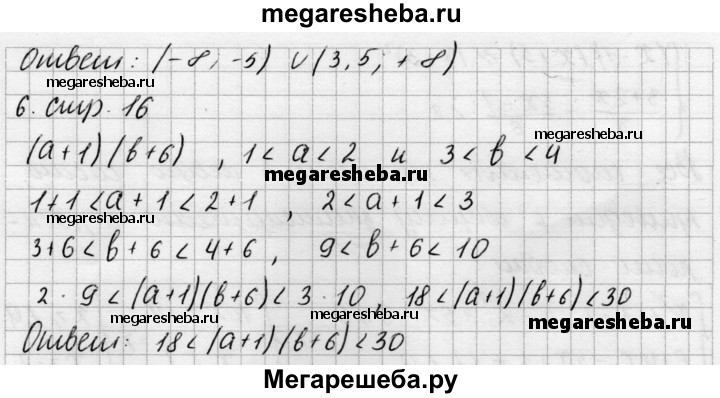 megaresheba.ru
Ответ: (-8; -5) ∪ (3,5; +8)
megaresheba.ru
6. стр. 16
megaresheba.ru
(a+1)(b+6) , 1 < a < 2 и 3 < b < 4
megaresheba.ru
1+1 < a+1 < 2+1 , 2 < a+1 < 3
3+6 < b+6 < 4+6, 9 < b+6 < 10
2 · 9 < (a+1)(b+6) < 3 · 10, 18 < (a+1)(b+6) < 30
megaresheba.ru megaresheba.ru megaresheba.ru
Ответ: 18 < (a+1)(b+6) < 30
Мегарешеба.ру